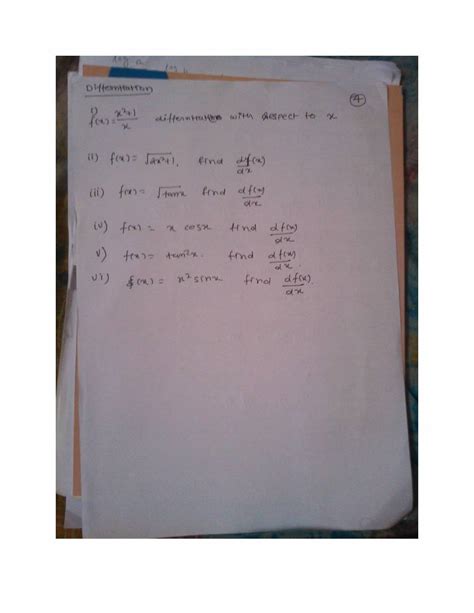 log a
Differntiation
④
i) f(x) = x²+1/x differntiate with respect to x
ii) f(x) = √2x²+1, find df(x)/dx
iii) f(x) = √tanx find df(x)/dx
iv) f(x) = x cosx find df(x)/dx
v) f(x) = tan²x. find df(x)/dx.
vi) f(x) = x² sinx find df(x)/dx.